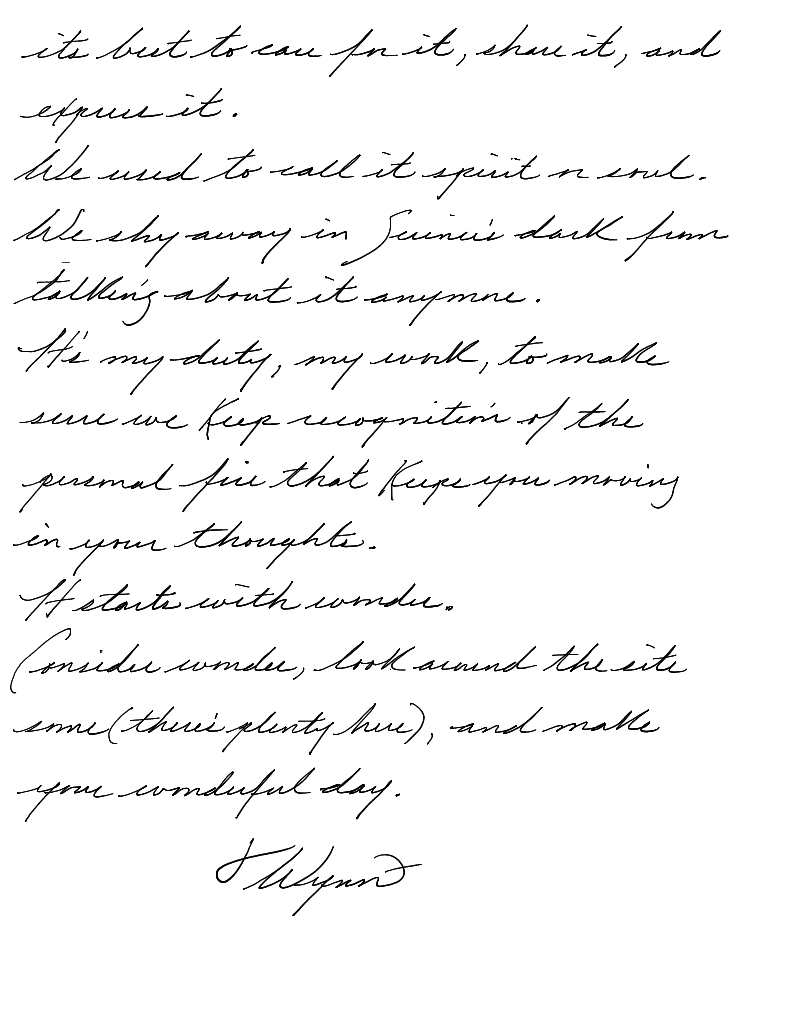 its best to care for it, share it, and
express it.
We used to call it spirit or soul.
We shy away in Science's dark from
talking about it anymore.
It's my duty, my work, to make
sure we keep recognition of the
personal fire that keeps you moving
in your thoughts.
It starts with wonder.
Consider wonder, look around the site
some (there's plenty here), and make
your wonderful day.
Wynn